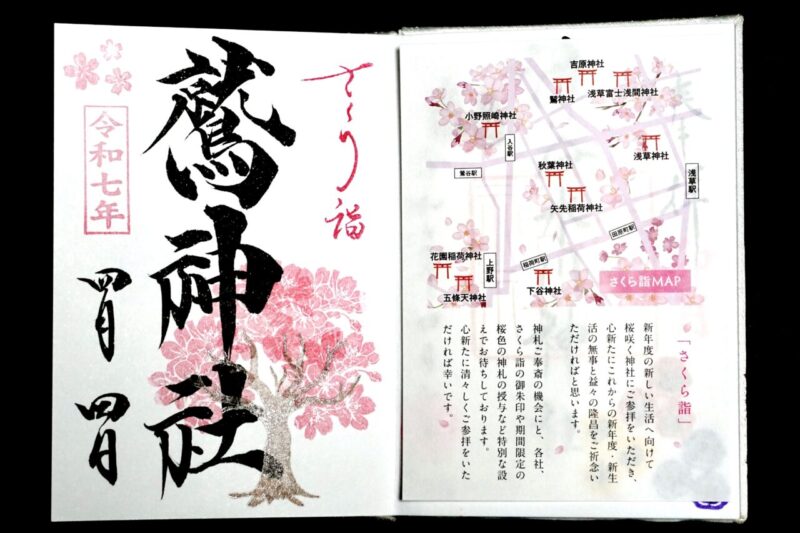 さくら詣
鷲神社
令和七年
四月
四日
吉原神社
鷲神社
浅草富士浅間神社
小野照崎神社
入谷駅
鶯谷駅
浅草神社
秋葉神社
矢先稲荷神社
浅草駅
田原町駅
花園稲荷神社
上野駅
稲荷町駅
五條天神社
下谷神社
さくら詣MAP
「さくら詣」
新年度の新しい生活へ向けて
桜咲く神社にご参拝をいただき、
心新たにこれからの新年度・新生
活の無事と益々の隆昌をご祈念い
ただければと思います。
神札ご奉斎の機会にと、各社、
さくら詣の御朱印や期間限定の
桜色の神札の授与など特別な設
えでお待ちしております。
心新たに清々しくご参拝をいた
だければ幸いです。